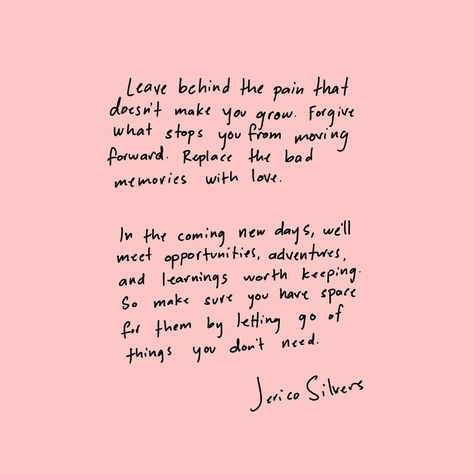 Leave behind the pain that
doesn't make you grow. Forgive
what stops you from moving
forward. Replace the bad
memories with love.
In the coming new days, we'll
meet opportunities, adventures,
and learnings worth keeping.
So make sure you have space
for them by letting go of
things you don't need.
Jerico Silvers